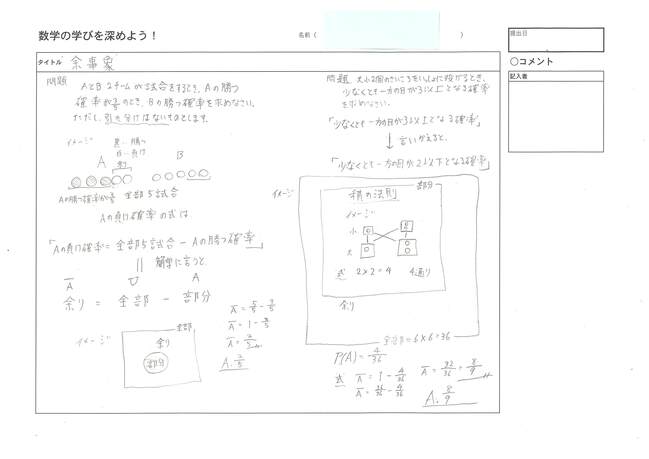 数学の学びを深めよう！
名前（　）
提出日
タイトル 余事象
○コメント
記入者
問題
AとB2チームが試合をするとき、Aの勝つ
確率が3/5のとき、Bの勝つ確率を求めなさい。
ただし、引き分けはないものとします。
イメージ
黒…勝つ
白…負け
A
B
Aの勝つ確率が3/5
全部5試合
Aの負け確率の式は
「Aの負け確率＝全部5試合－Aの勝つ確率」
簡単に言うと
A̅ U A
余り ＝ 全部 － 部分
イメージ
全部
余り
部分
A̅ = 5/5 - 3/5
A̅ = 1 - 3/5
A̅ = 2/5
A. 2/5
問題 大小2個のさいころをいっしょに投げるとき、
少なくとも一方の目が3以上となる確率
を求めなさい。
「少なくとも一方の目が3以上となる確率」
↓言いかえると、
「少なくとも一方の目が2以下となる確率」
イメージ
部分
積の法則
イメージ
小
大
式 2×2=4 4通り
余り
全部=6×6=36
P(A)= 4/36
式 A̅ = 1 - 4/36
A̅ = 36/36 - 4/36
A̅ = 32/36 = 8/9
A. 8/9